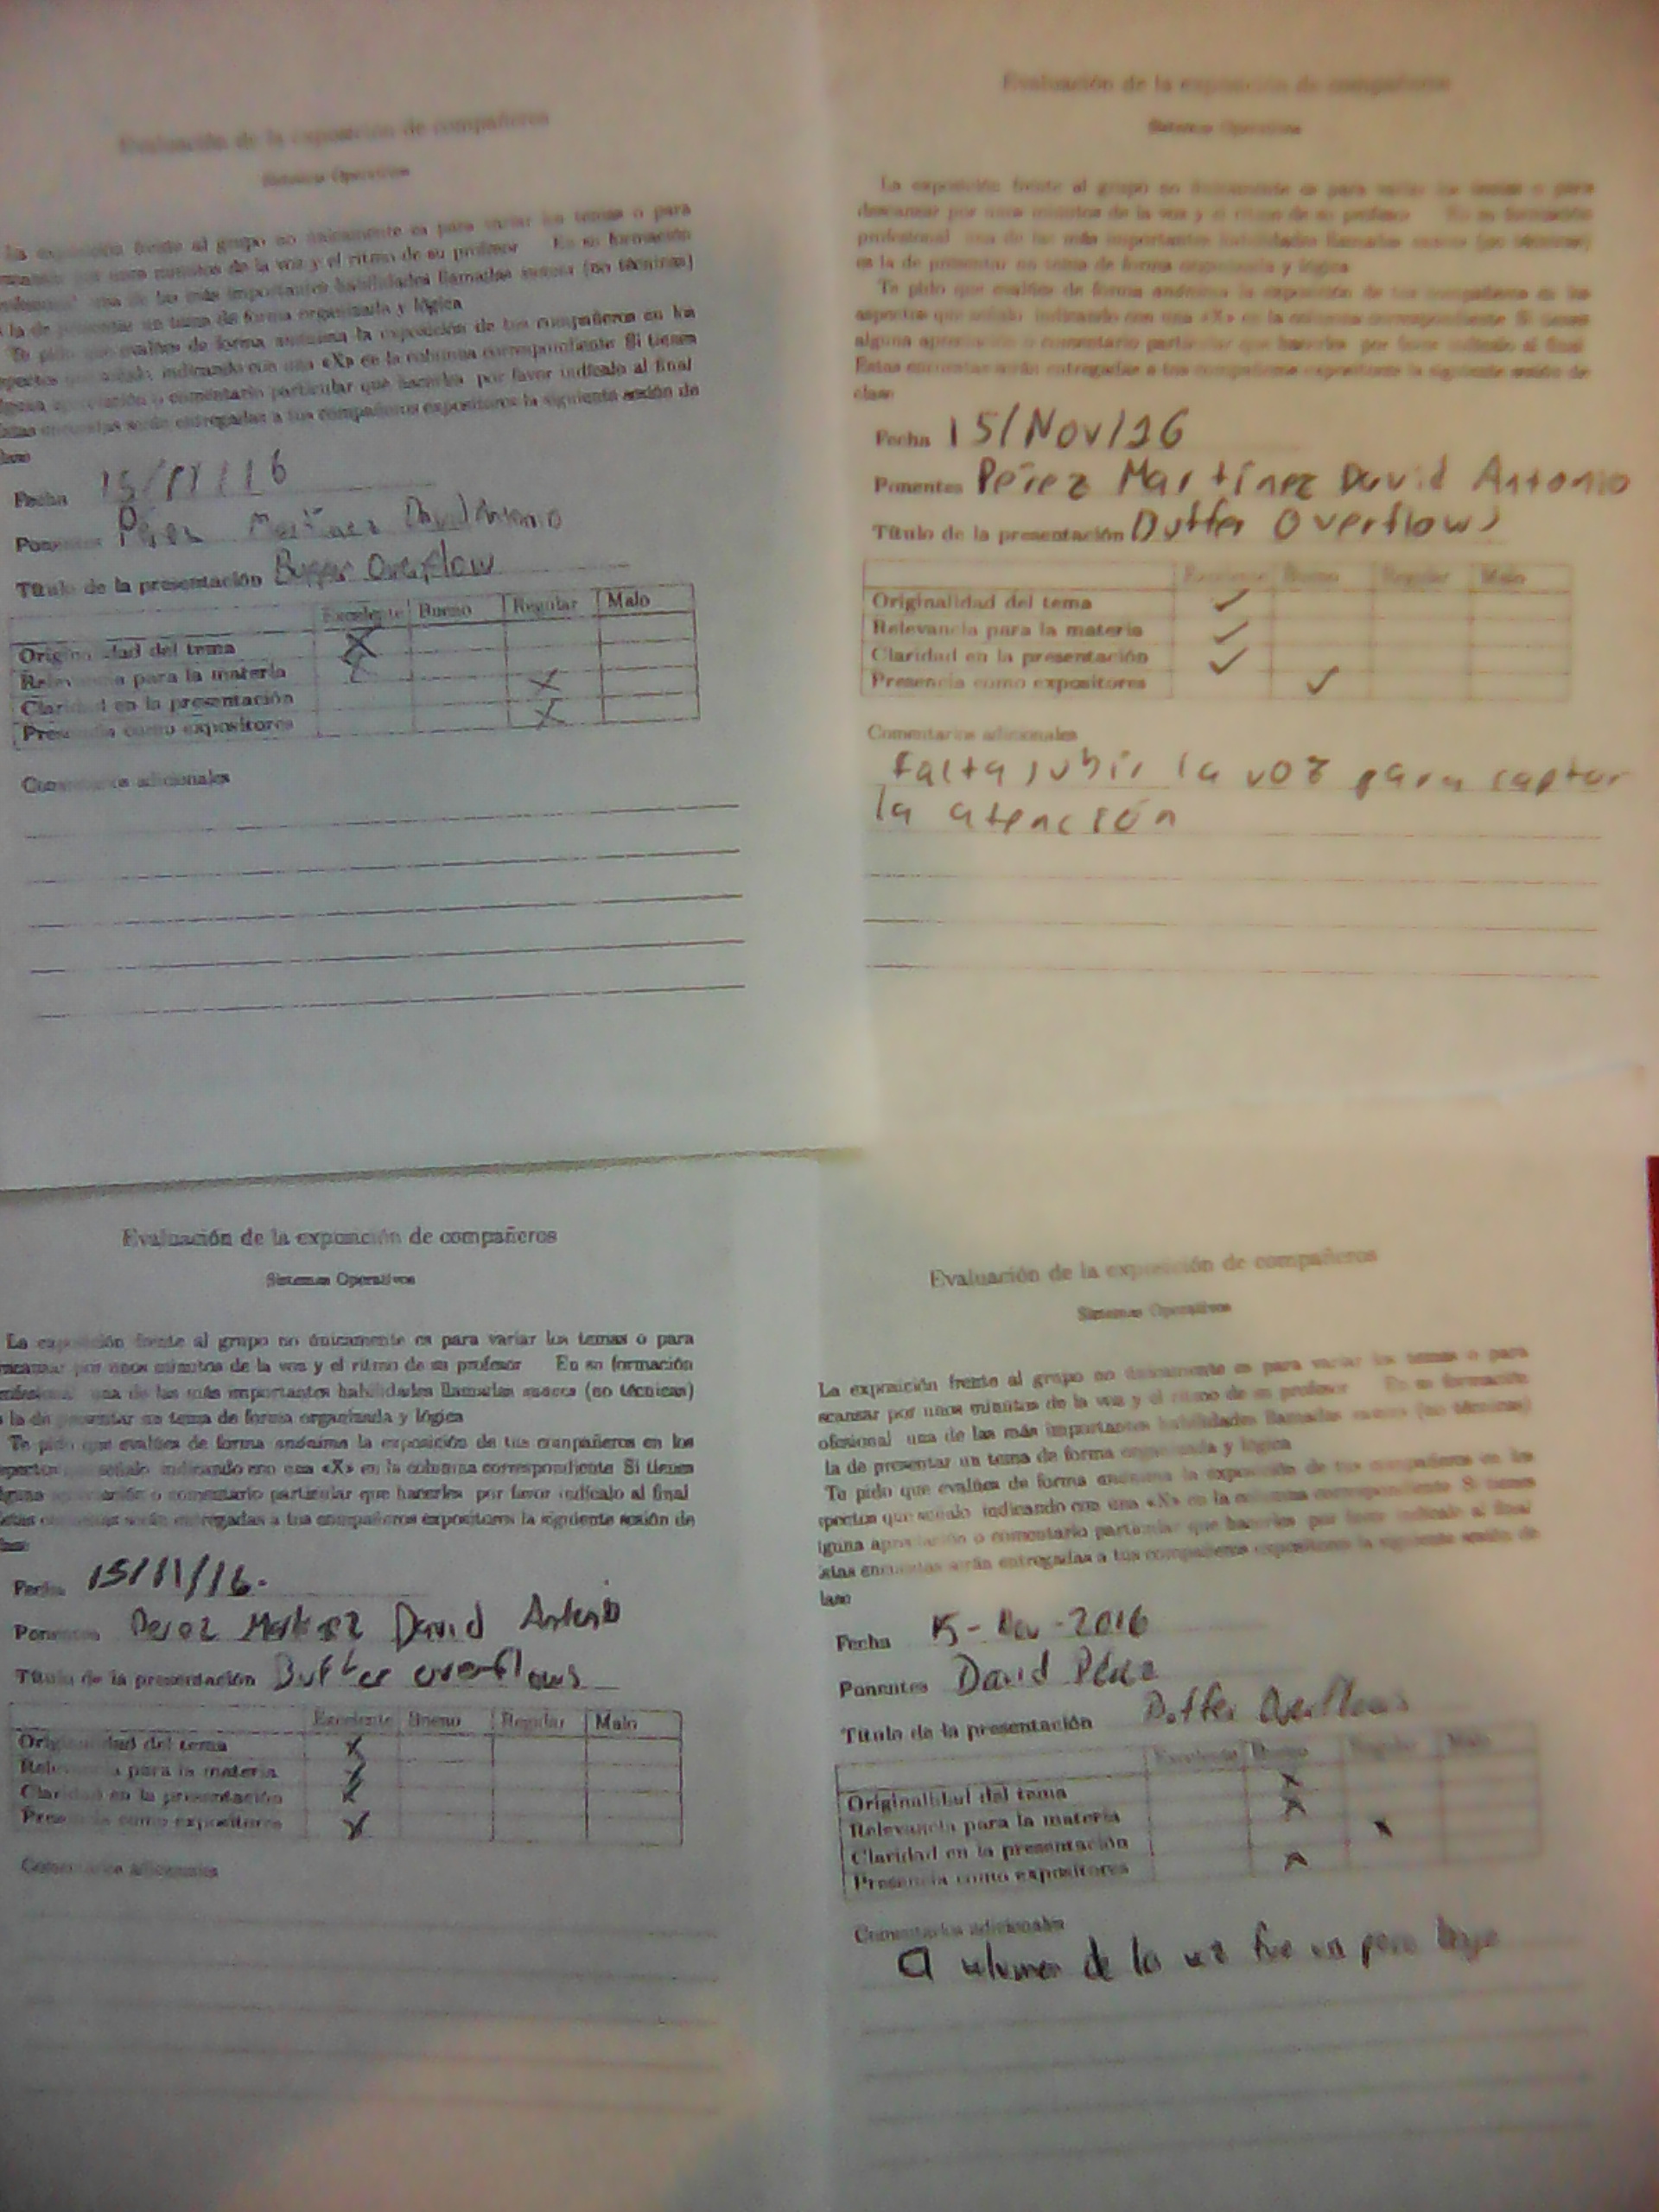 Evaluación de la exposición de compañeros
Sistemas Operativos
La exposición frente al grupo no únicamente es para variar los temas o para
por unos minutos de la voz y el ritmo de su profesor En su formación
una de las más importantes habilidades llamadas suaves (no técnicas)
la de presentar un tema de forma organizada y lógica
Te pido que evalúes de forma anónima la exposición de tus compañeros en los
indicando con una «X» en la columna correspondiente Si tienes
o comentario particular que hacerles por favor indícalo al final
encuestas serán entregadas a tus compañeros expositores la siguiente sesión de
Fecha 15/11/16
Ponentes Pérez Martínez David Antonio
Título de la presentación Buffer Overflow
Excelente Bueno Regular Malo
Originalidad del tema X
Relevancia para la materia X
Claridad en la presentación X
Presencia como expositores X
Comentarios adicionales
Evaluación de la exposición de compañeros
Sistemas Operativos
La exposición frente al grupo no únicamente es para variar los temas o para
descansar por unos minutos de la voz y el ritmo de su profesor En su formación
profesional una de las más importantes habilidades llamadas suaves (no técnicas)
es la de presentar un tema de forma organizada y lógica
Te pido que evalúes de forma anónima la exposición de tus compañeros en los
aspectos que señalo indicando con una «X» en la columna correspondiente Si tienes
alguna apreciación o comentario particular que hacerles por favor indícalo al final
Estas encuestas serán entregadas a tus compañeros expositores la siguiente sesión de
clase
Fecha 15/Nov/16
Ponentes Pérez Martínez David Antonio
Título de la presentación Buffer Overflows
Excelente Bueno Regular Malo
Originalidad del tema ✓
Relevancia para la materia ✓
Claridad en la presentación ✓
Presencia como expositores ✓
Comentarios adicionales
Falta subir la voz para captar
la atención
Evaluación de la exposición de compañeros
Sistemas Operativos
La exposición frente al grupo no únicamente es para variar los temas o para
por unos minutos de la voz y el ritmo de su profesor En su formación
una de las más importantes habilidades llamadas suaves (no técnicas)
la de presentar un tema de forma organizada y lógica
Te pido que evalúes de forma anónima la exposición de tus compañeros en los
señalo indicando con una «X» en la columna correspondiente Si tienes
o comentario particular que hacerles por favor indícalo al final
serán entregadas a tus compañeros expositores la siguiente sesión de
Fecha 15/11/16.
Ponentes Perez Martinez David Antonio
Título de la presentación Buffer overflows
Excelente Bueno Regular Malo
Originalidad del tema X
Relevancia para la materia X
Claridad en la presentación X
Presencia como expositores X
Comentarios adicionales
Evaluación de la exposición de compañeros
Sistemas Operativos
La exposición frente al grupo no únicamente es para variar los temas o para
scansar por unos minutos de la voz y el ritmo de su profesor En su formación
ofesional una de las más importantes habilidades llamadas suaves (no técnicas)
la de presentar un tema de forma organizada y lógica
Te pido que evalúes de forma anónima la exposición de tus compañeros en los
pectos que señalo indicando con una «X» en la columna correspondiente Si tienes
lguna apreciación o comentario particular que hacerles por favor indícalo al final
stas encuestas serán entregadas a tus compañeros expositores la siguiente sesión de
lase
Fecha 15-Nov-2016
Ponentes David Pérez
Título de la presentación Buffer Overflows
Excelente Bueno Regular Malo
Originalidad del tema X
Relevancia para la materia X
Claridad en la presentación X
Presencia como expositores X
Comentarios adicionales
El volumen de la voz fue un poco bajo